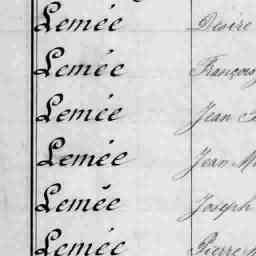 Lemée Desire
Lemée François
Lemée Jean
Lemée Jean M
Lemée Joseph
Lemée Pierre